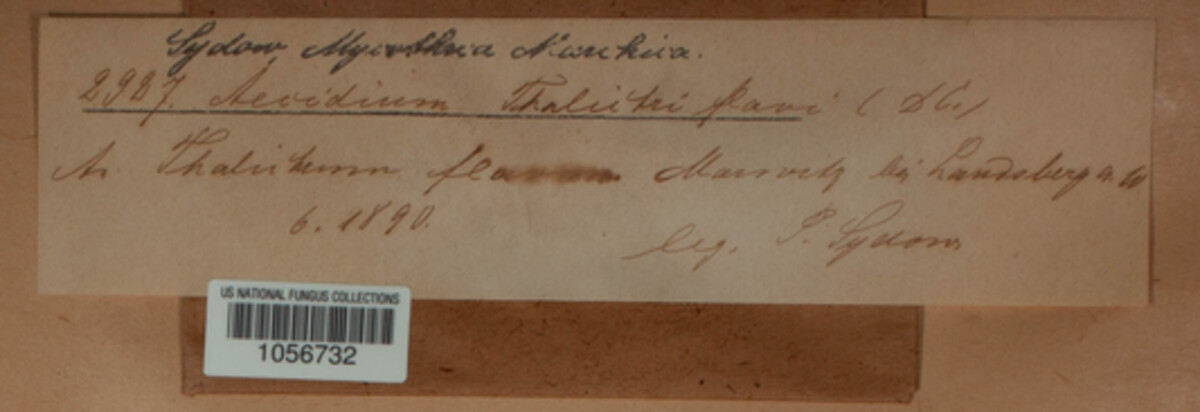 Sydow, Mycotheca Marchica.
2927. Aecidium Thalictri flavi (DC.)
An Thalictrum flavum Marwitz bei Landsberg a. W
6. 1890.
leg. P. Sydow
US NATIONAL FUNGUS COLLECTIONS
1056732